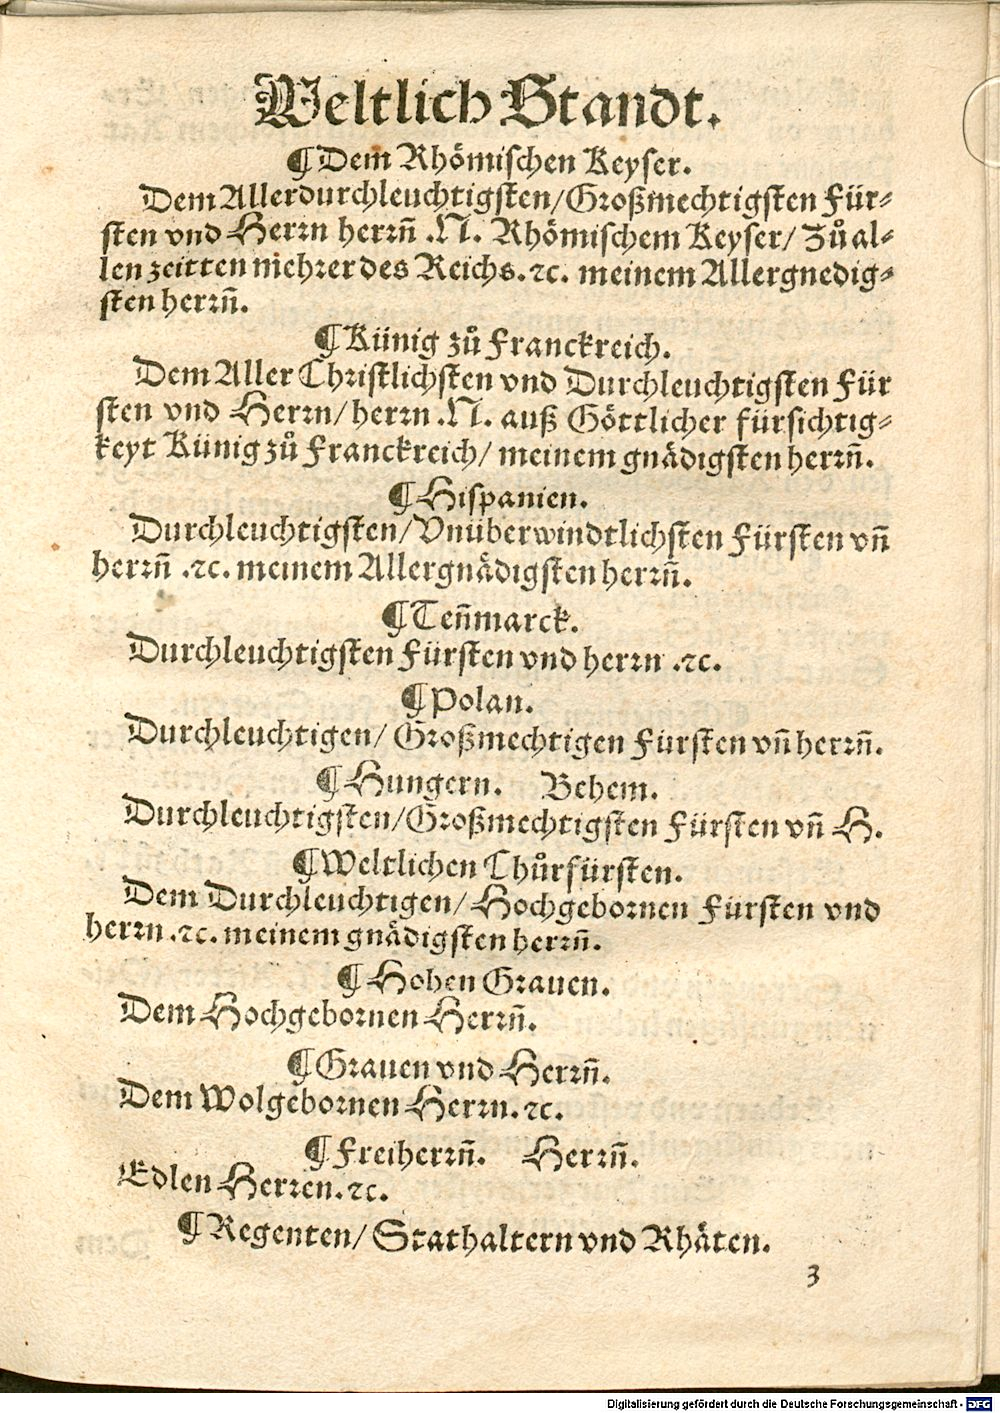 Weltlich Standt.
¶ Dem Rhömischen Keyser.
Dem Allerdurchleuchtigsten/Großmechtigsten Für⸗
sten vnd Herrn herrñ .N. Rhömischem Keyser/ Zů al⸗
len zeitten mehrer des Reichs.ꝛc. meinem Allergnedig⸗
sten herrñ.
¶ Künig zů Franckreich.
Dem Aller Christlichsten vnd Durchleuchtigsten Für
sten vnd Herrn/herrn .N. auß Göttlicher fürsichtig⸗
keyt Künig zů Franckreich/ meinem gnädigsten herrñ.
¶ Hispanien.
Durchleuchtigsten/Vnüberwindtlichsten Fürsten vñ
herrñ .ꝛc. meinem Allergnädigsten herrñ.
¶ Teñmarck.
Durchleuchtigsten Fürsten vnd herrn .ꝛc.
¶ Polan.
Durchleuchtigen/ Großmechtigen Fürsten vñ herrñ.
¶ Hungern. Behem.
Durchleuchtigsten/Großmechtigsten Fürsten vñ H.
¶ Weltlichen Chůrfürsten.
Dem Durchleuchtigen/ Hochgebornen Fürsten vnd
herrn .ꝛc. meinem gnädigsten herrñ.
¶ Hohen Grauen.
Dem Hochgebornen Herrñ.
¶ Grauen vnd Herrñ.
Dem Wolgebornen Herrn.ꝛc.
¶ Freiherrñ. Herrñ.
Edlen Herren.ꝛc.
¶ Regenten/ Stathaltern vnd Rhäten.
3
Digitalisierung gefördert durch die Deutsche Forschungsgemeinschaft - DFG